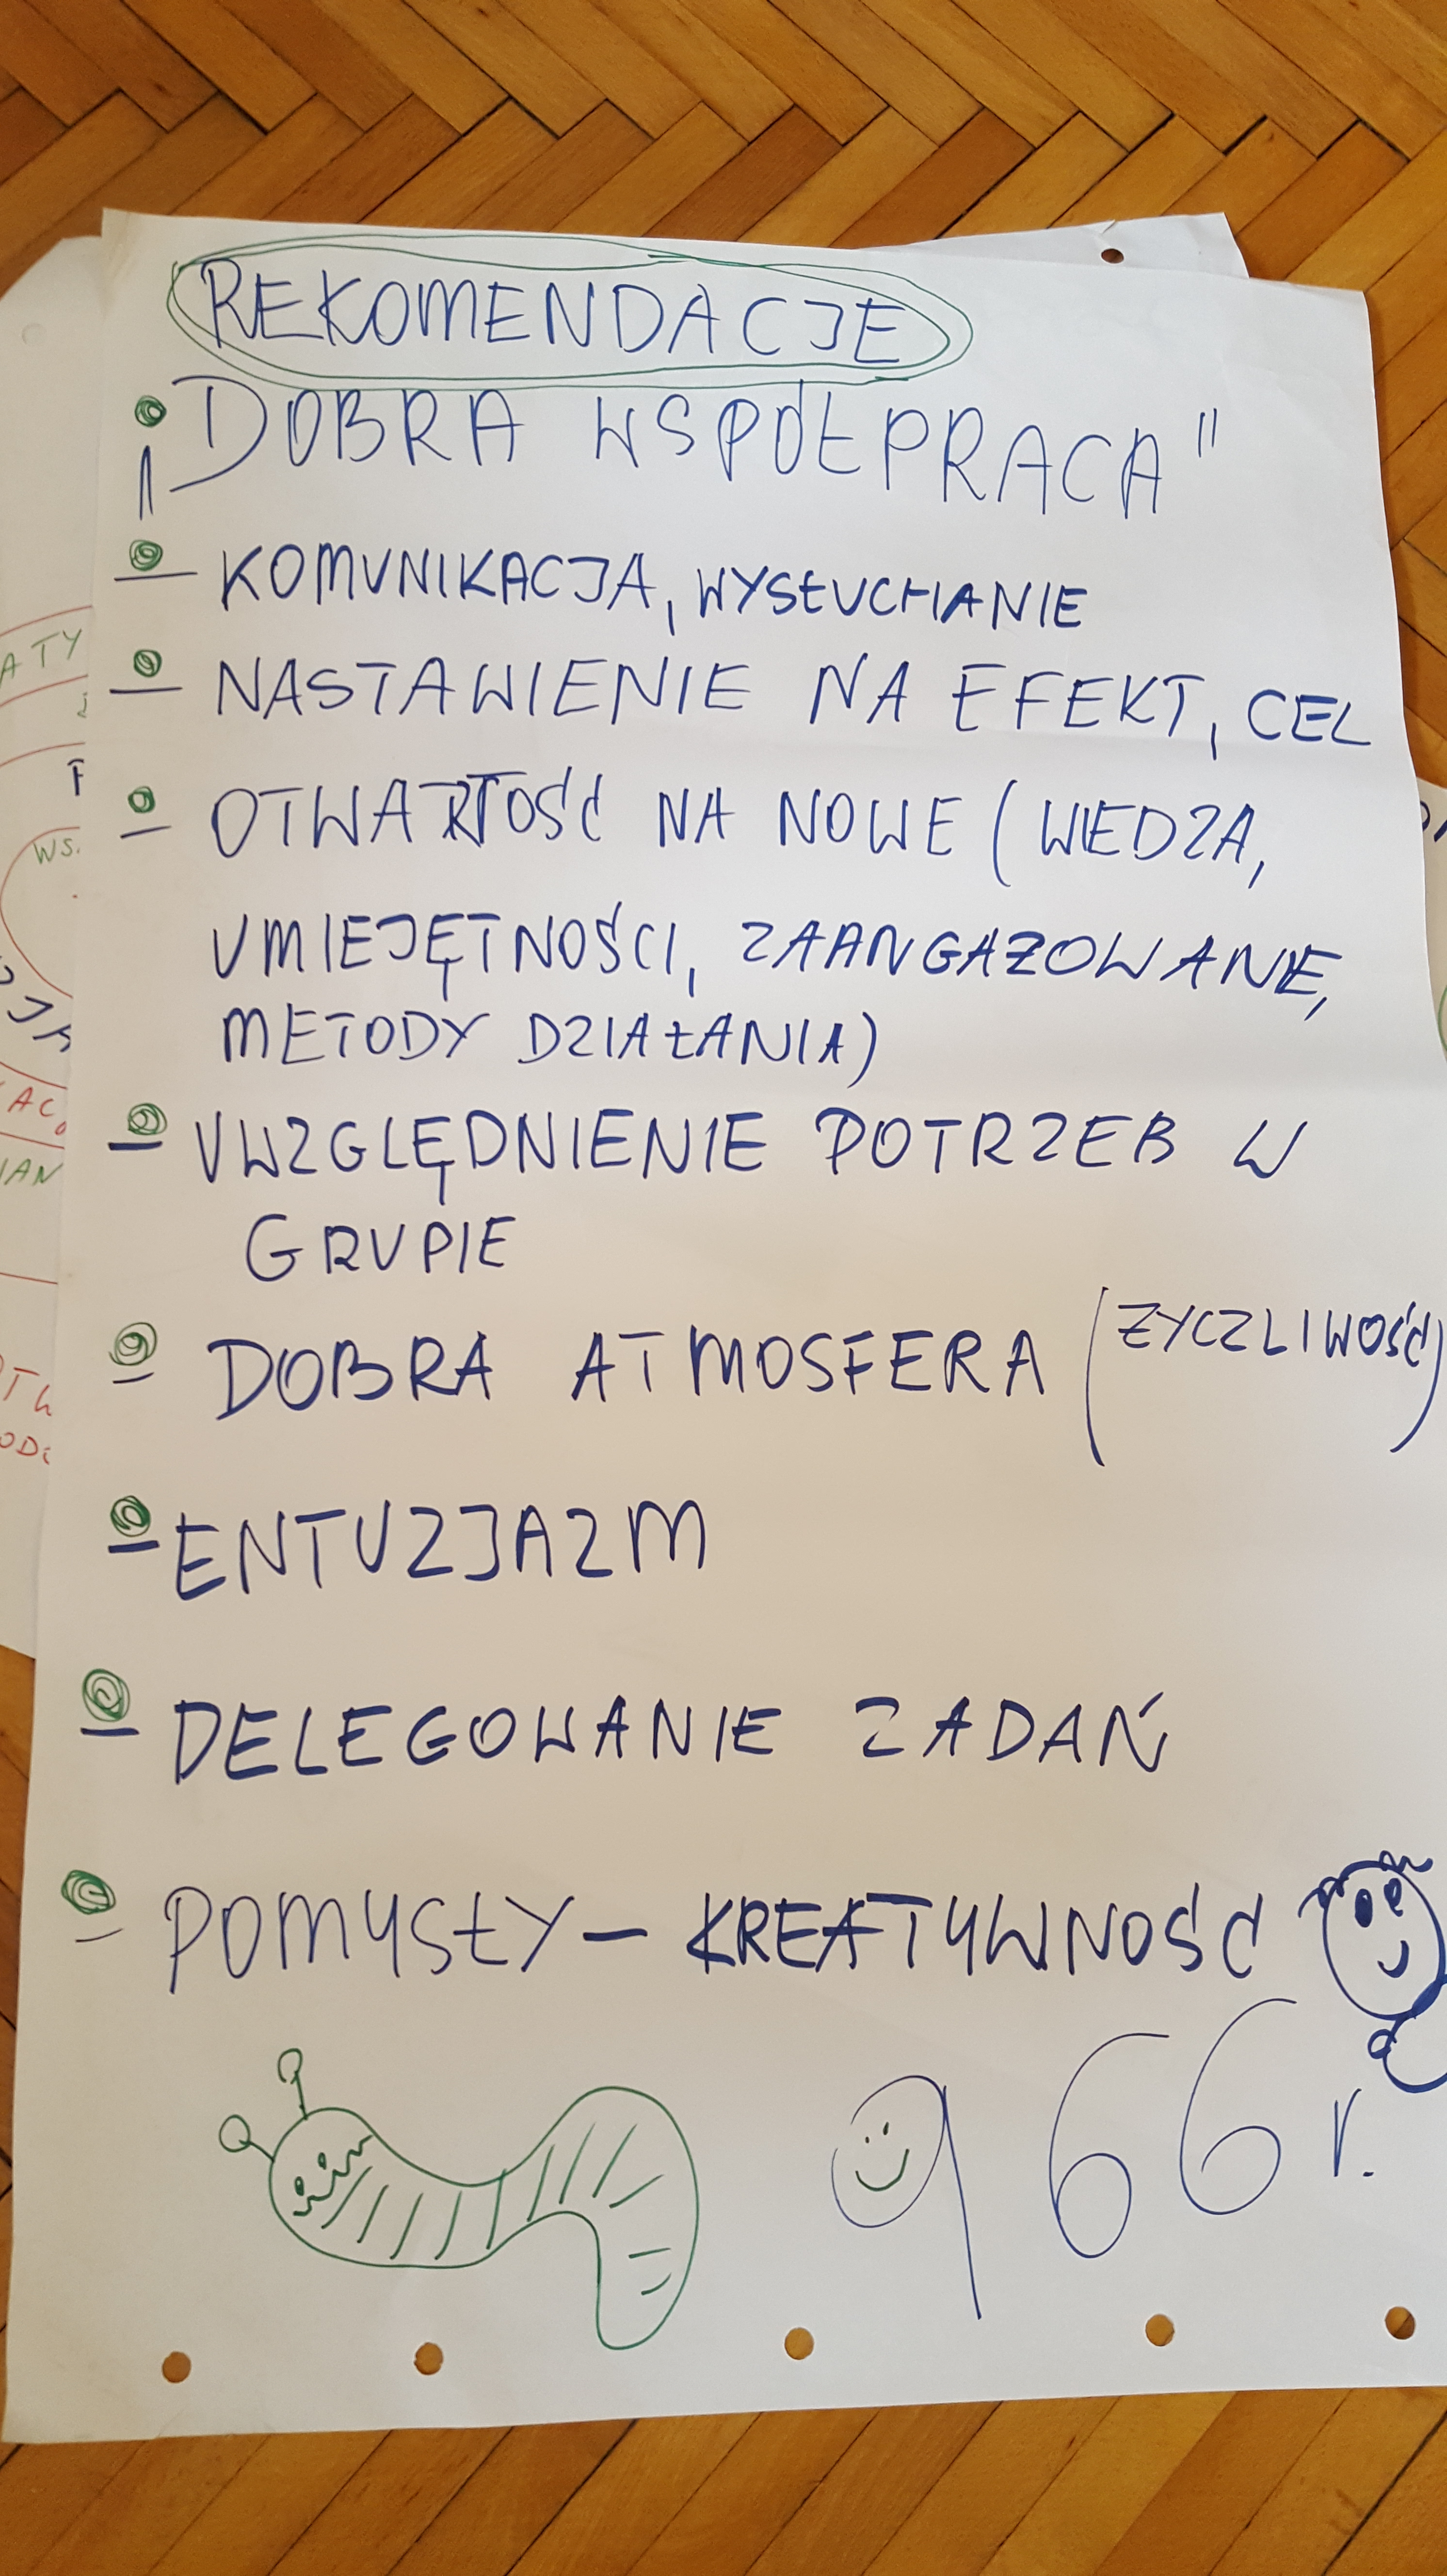 REKOMENDACJE
„DOBRA WSPÓŁPRACA"
KOMUNIKACJA, WYSŁUCHANIE
NASTAWIENIE NA EFEKT, CEL
OTWARTOŚĆ NA NOWE (WIEDZA,
UMIEJĘTNOŚCI, ZAANGAŻOWANIE,
METODY DZIAŁANIA)
UWZGLĘDNIENIE POTRZEB W
GRUPIE
DOBRA ATMOSFERA (ŻYCZLIWOŚĆ)
ENTUZJAZM
DELEGOWANIE ZADAŃ
POMYSŁY – KREATYWNOŚĆ
966 r.